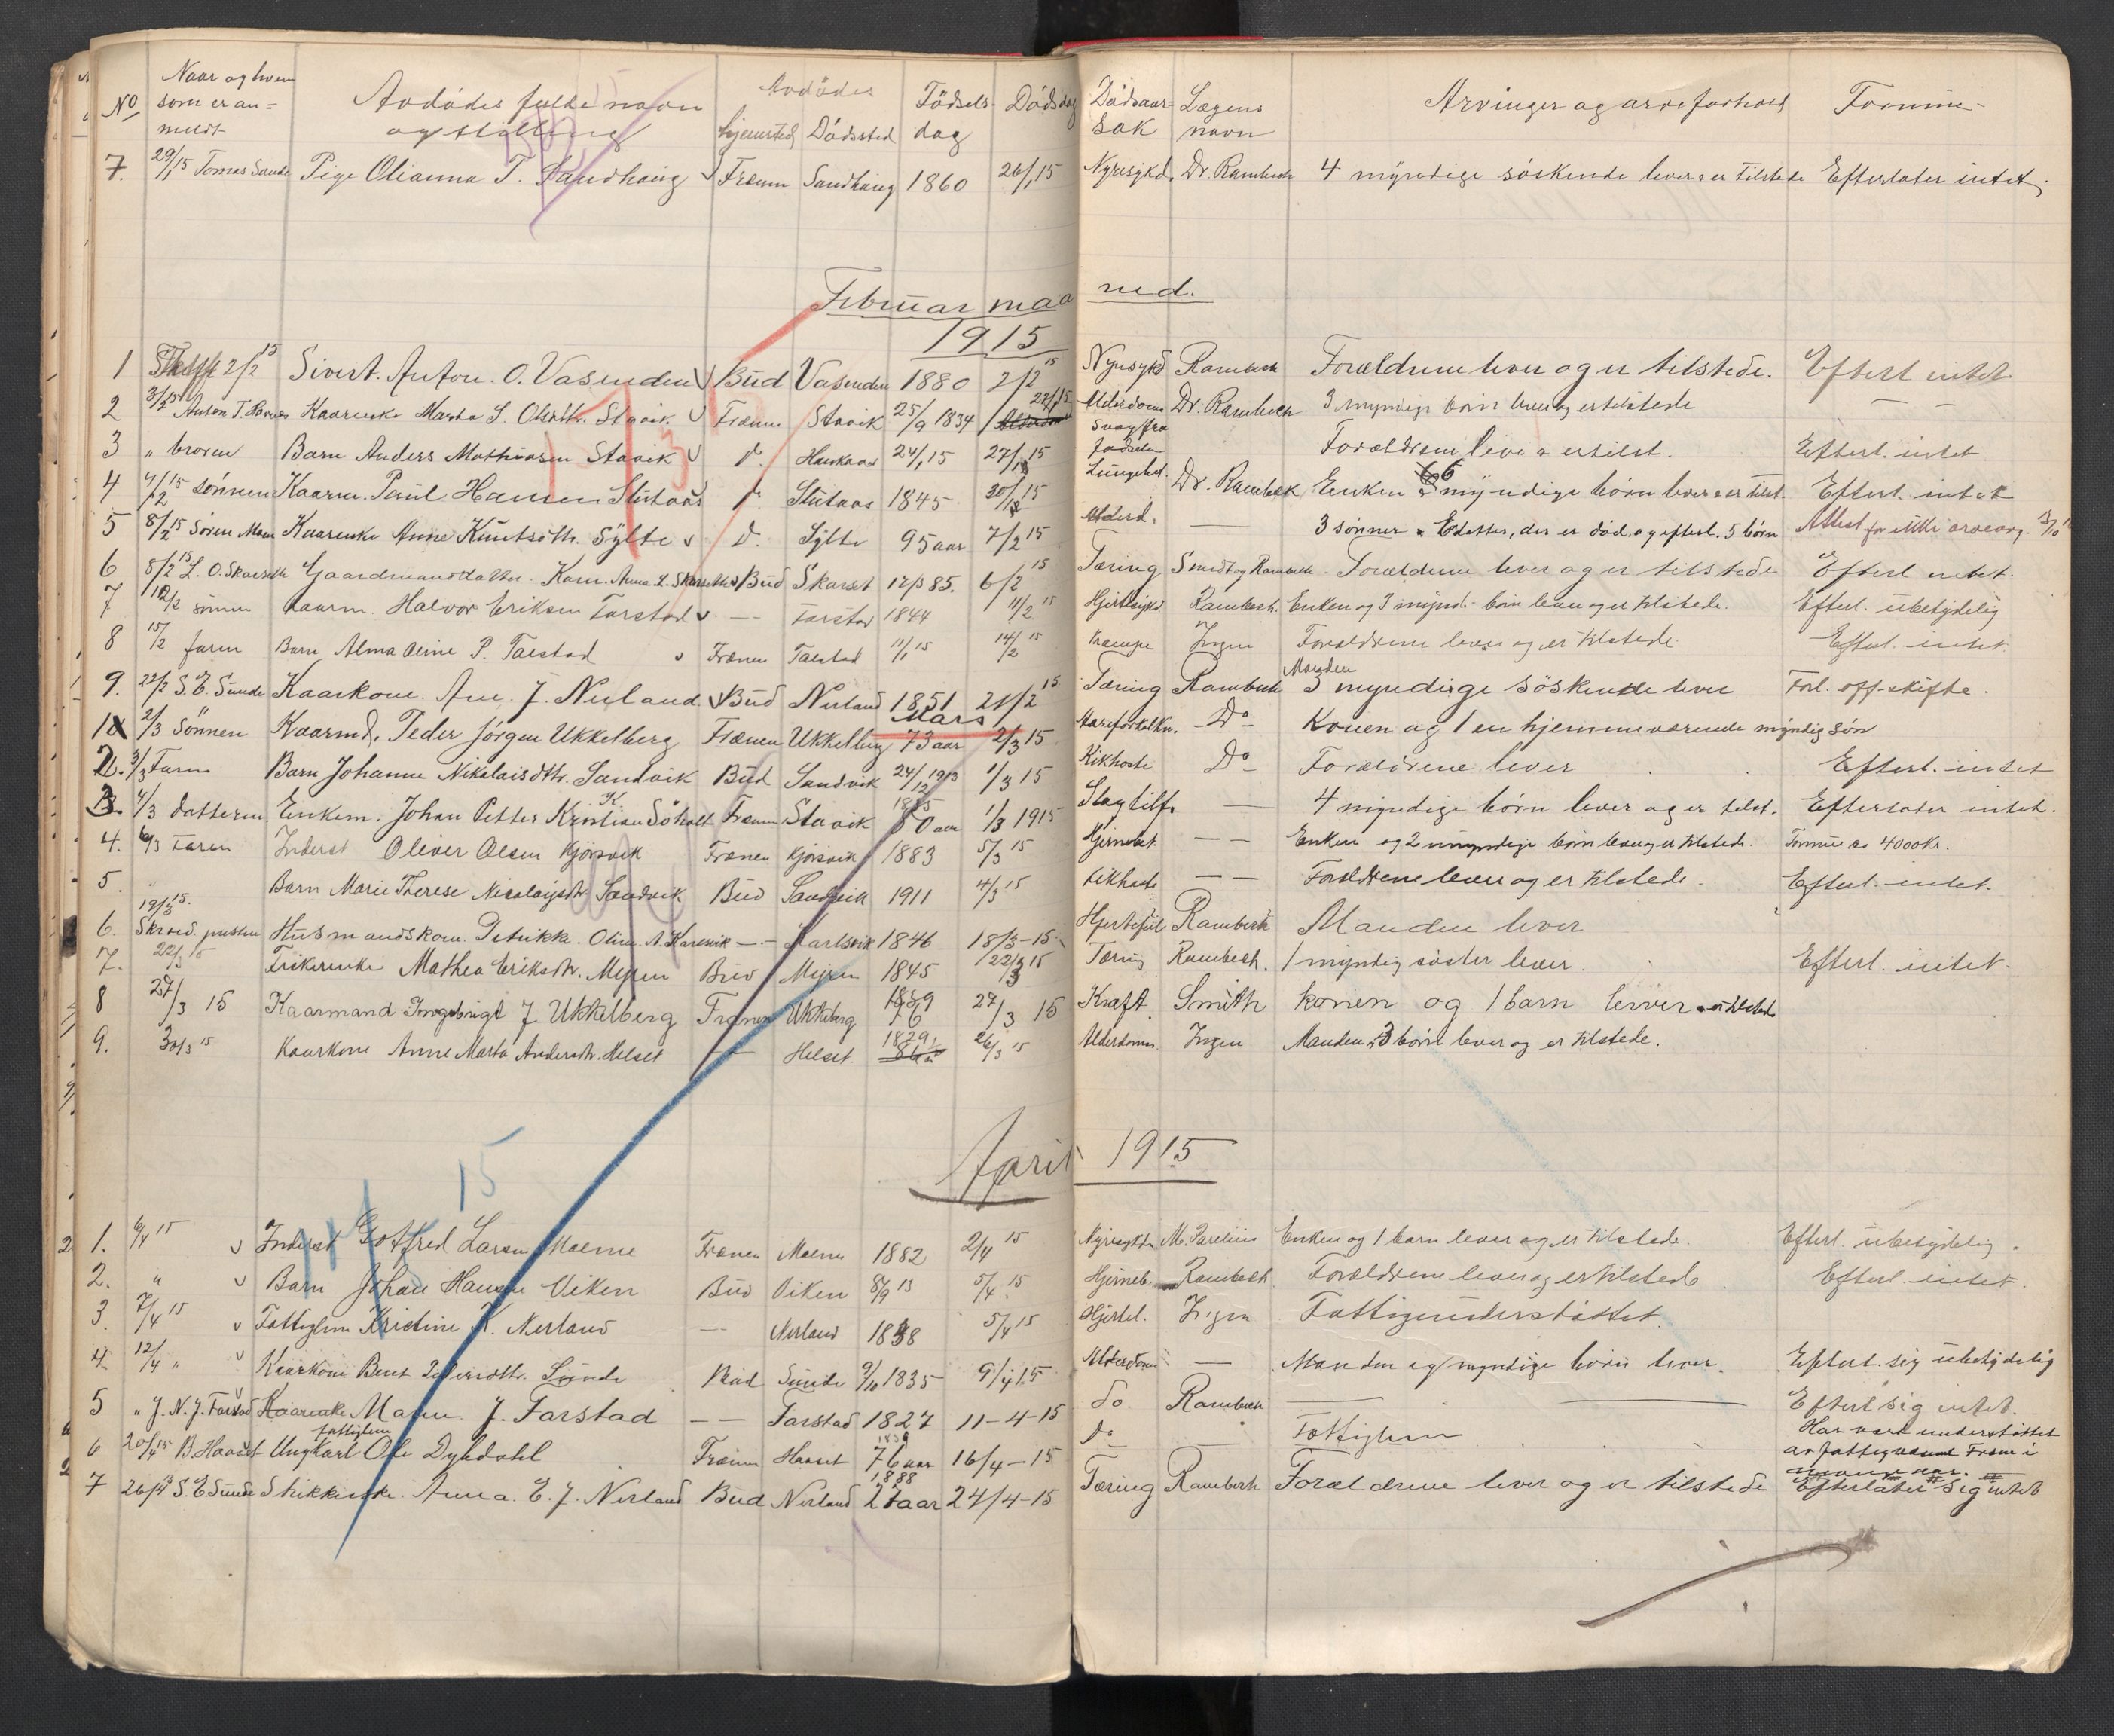 No Naar og hvem som er an= meldt Avdödes fulde navn og stilling Avdödes hjemsted Dödssted Födsels- dag Dödsdag Dödsaar= sak Lægens navn Arvinger og arveforhold Formue-
7. 29/1 15 Tomas Sande Pige Olianna T. Sandhaug Frænen Sandhaug 1860 26/1 15 Nyresykd. Dr. Rambech 4 myndige söskende lever & er tilstede Efterlater intet,
Februar maaned.
1915
1 2/2 15 Sivert Anton. O. Vasenden Bud Vasenden 1880 2/2 15 Nyresykd Rambech Forældrene lever og er tilstede. Efterl intet
2 3/2 15 Anton T. Kaarenke Marta S. Olsdtr. Stavik. Frænen Stavik 25/9 1834 27/1 15 Alderdom Dr. Rambech 3 myndige börn lever og er tilstede —
3 " broren Barn Anders Mathiasen Stavik d. 24/1 15 27/1 15 Svag fra födselen Forældrene lever & er tilst. Efterl. intet
4 4/2 15 sönnen Kaarm. Paul Hansen Stutaas d. Stutaas 1845 30/1 15 Lungebet. Dr. Rambech Enken & 6 myndige börn lever & er tilst. Efterl. intet
5 8/2 15 Sören Moen Kaarenke Anne Knutsdtr. Sylte d. Sylte 95 aar 7/2 15 Alderd. — 3 sönner & 1 datter, der er död, og efterl. 5 börn Attest for
6 8/2 15 L. O. Skarseth Gaardmandsdatter Karn. Anna L. Skarseth Bud Skarset 12/3 85. 6/2 15 Tæring Smith og Rambech Forældrene lever og er tilstede Efterl intet.
7 12/2 sönnen Kaarm. Halvor Eriksen Farstad — Farstad 1844 11/2 15 Hjertesykd. Rambech. Enken og 3 mynd. börn lever og er tilstede. Efterl. ubetydelig
8 15/2 faren Barn Alma Oline P. Talstad Frænen Talstad 11/1 15 14/2 15 Krampe Ingen Forældrene lever og er tilstede Efterl. intet.
9. 22/2 S. E. Sunde Kaarkone. Ane. J. Nerland Bud Nerland 1851 21/2 15 Tæring Rambech Manden 3 myndige söskende lever Forl. off. skifte.
Mars
1 2/3 Sönnen Kaarmd. Peder Jörgen Ukkelberg Frænen Ukkelberg 73 aar 2/3 15 Aareforkalkn. Do Konen og 1 en hjemmeværende myndig sön
2. 3/3 Faren Barn Johanne Nikolaisdtr. Sandvik Bud Sandvik 24/12 1913 1/3 15 Kikhoste Do Forældrene lever Efterl. intet
3. 4/3 datteren Enkem. Johan Petter Kristian K. Söholt Frænen Stavik 80 aar 1835 1/3 1915 Slagtilf. — 4 myndige börn lever og er tilst. Efterlater intet.
4. 6/3 Faren Inderst Oliver Olsen Kjörsvik Frænen Kjörsvik 1883 5/3 15 Hjernebet. — — Enken og 2 umyndige börn lever og er tilstede. Formue ca 4000 kr.
5. Barn Marie Therese Nicolaysdtr. Sandvik Bud Sandvik 1911 4/3 15 Kikhoste — — Forældrene lever og er tilstede. Efterl. intet.
6. 19/3 15. Husmandskone Petrikke. Oline. A. Karlsvik — Karlsvik 1846 18/3-15. Hjertefeil Rambech Manden lever
7. 22/3 15 Mathea Eriksdtr. Mejren Bud Mejren 1845 22/3 15 Tæring Rambech. 1 myndig söster lever. Efterl. intet.
8 27/3 15 Kaarmand Ingebrigt J Ukkelberg Frænen Ukkelberg 76 27/3 15 Kræft. Smith konen og 1 barn lever & er tilstede
9. 30/3 15 Kaarkone Anne Marta Andersdtr. Helset — Helset 1829 26/3 15 Alderdoms. Ingen Manden & 3 börn lever og er tilstede.
April 1915
1. 6/4 15 Inderst Gotfred Larsen Malme Frænen Malme 1882 2/4 15 Nyresykd. M. Parelius Enken og 1 barn lever og er tilstede. Efterl. ubetydelig.
2. " Barn Johan Hansen Viken Bud Viken 8/9 13 5/4 15 Hjerneb. Rambech. Forældrene lever og er tilstede Efterl. intet.
3. 7/4 15 Fattiglem Kristine K. Nerland — Nerland 1838 5/4 15 Hjertel. Ingen Fattigunderstöttet.
4. 12/4 " Kaarkone Berit Pedersdtr. Sunde Bud Sunde 9/10 1835 9/4 15 Alderdom — Manden og myndige börn lever. Efterl. sig ubetydelig
5 " J. N. J. Farstad Kaarenke Maren J. Farstad — — Farstad 1827 11-4-15 do Rambech — — Efterl sig intet.
6 20/4 15 B. Haaset fattiglem Ungkarl Ole Dyrdahl Frænen Haaset 76 aar 16/4-15 do Fattiglem Har vært understöttet av fattigvæsenet Fræn i
7 26/4 S. E. Sunde Anna. E. J. Nerland Bud Nerland 1888 27 aar 24/4-15 Tæring Rambech Forældrene lever og er tilstede Efterlater sig intet